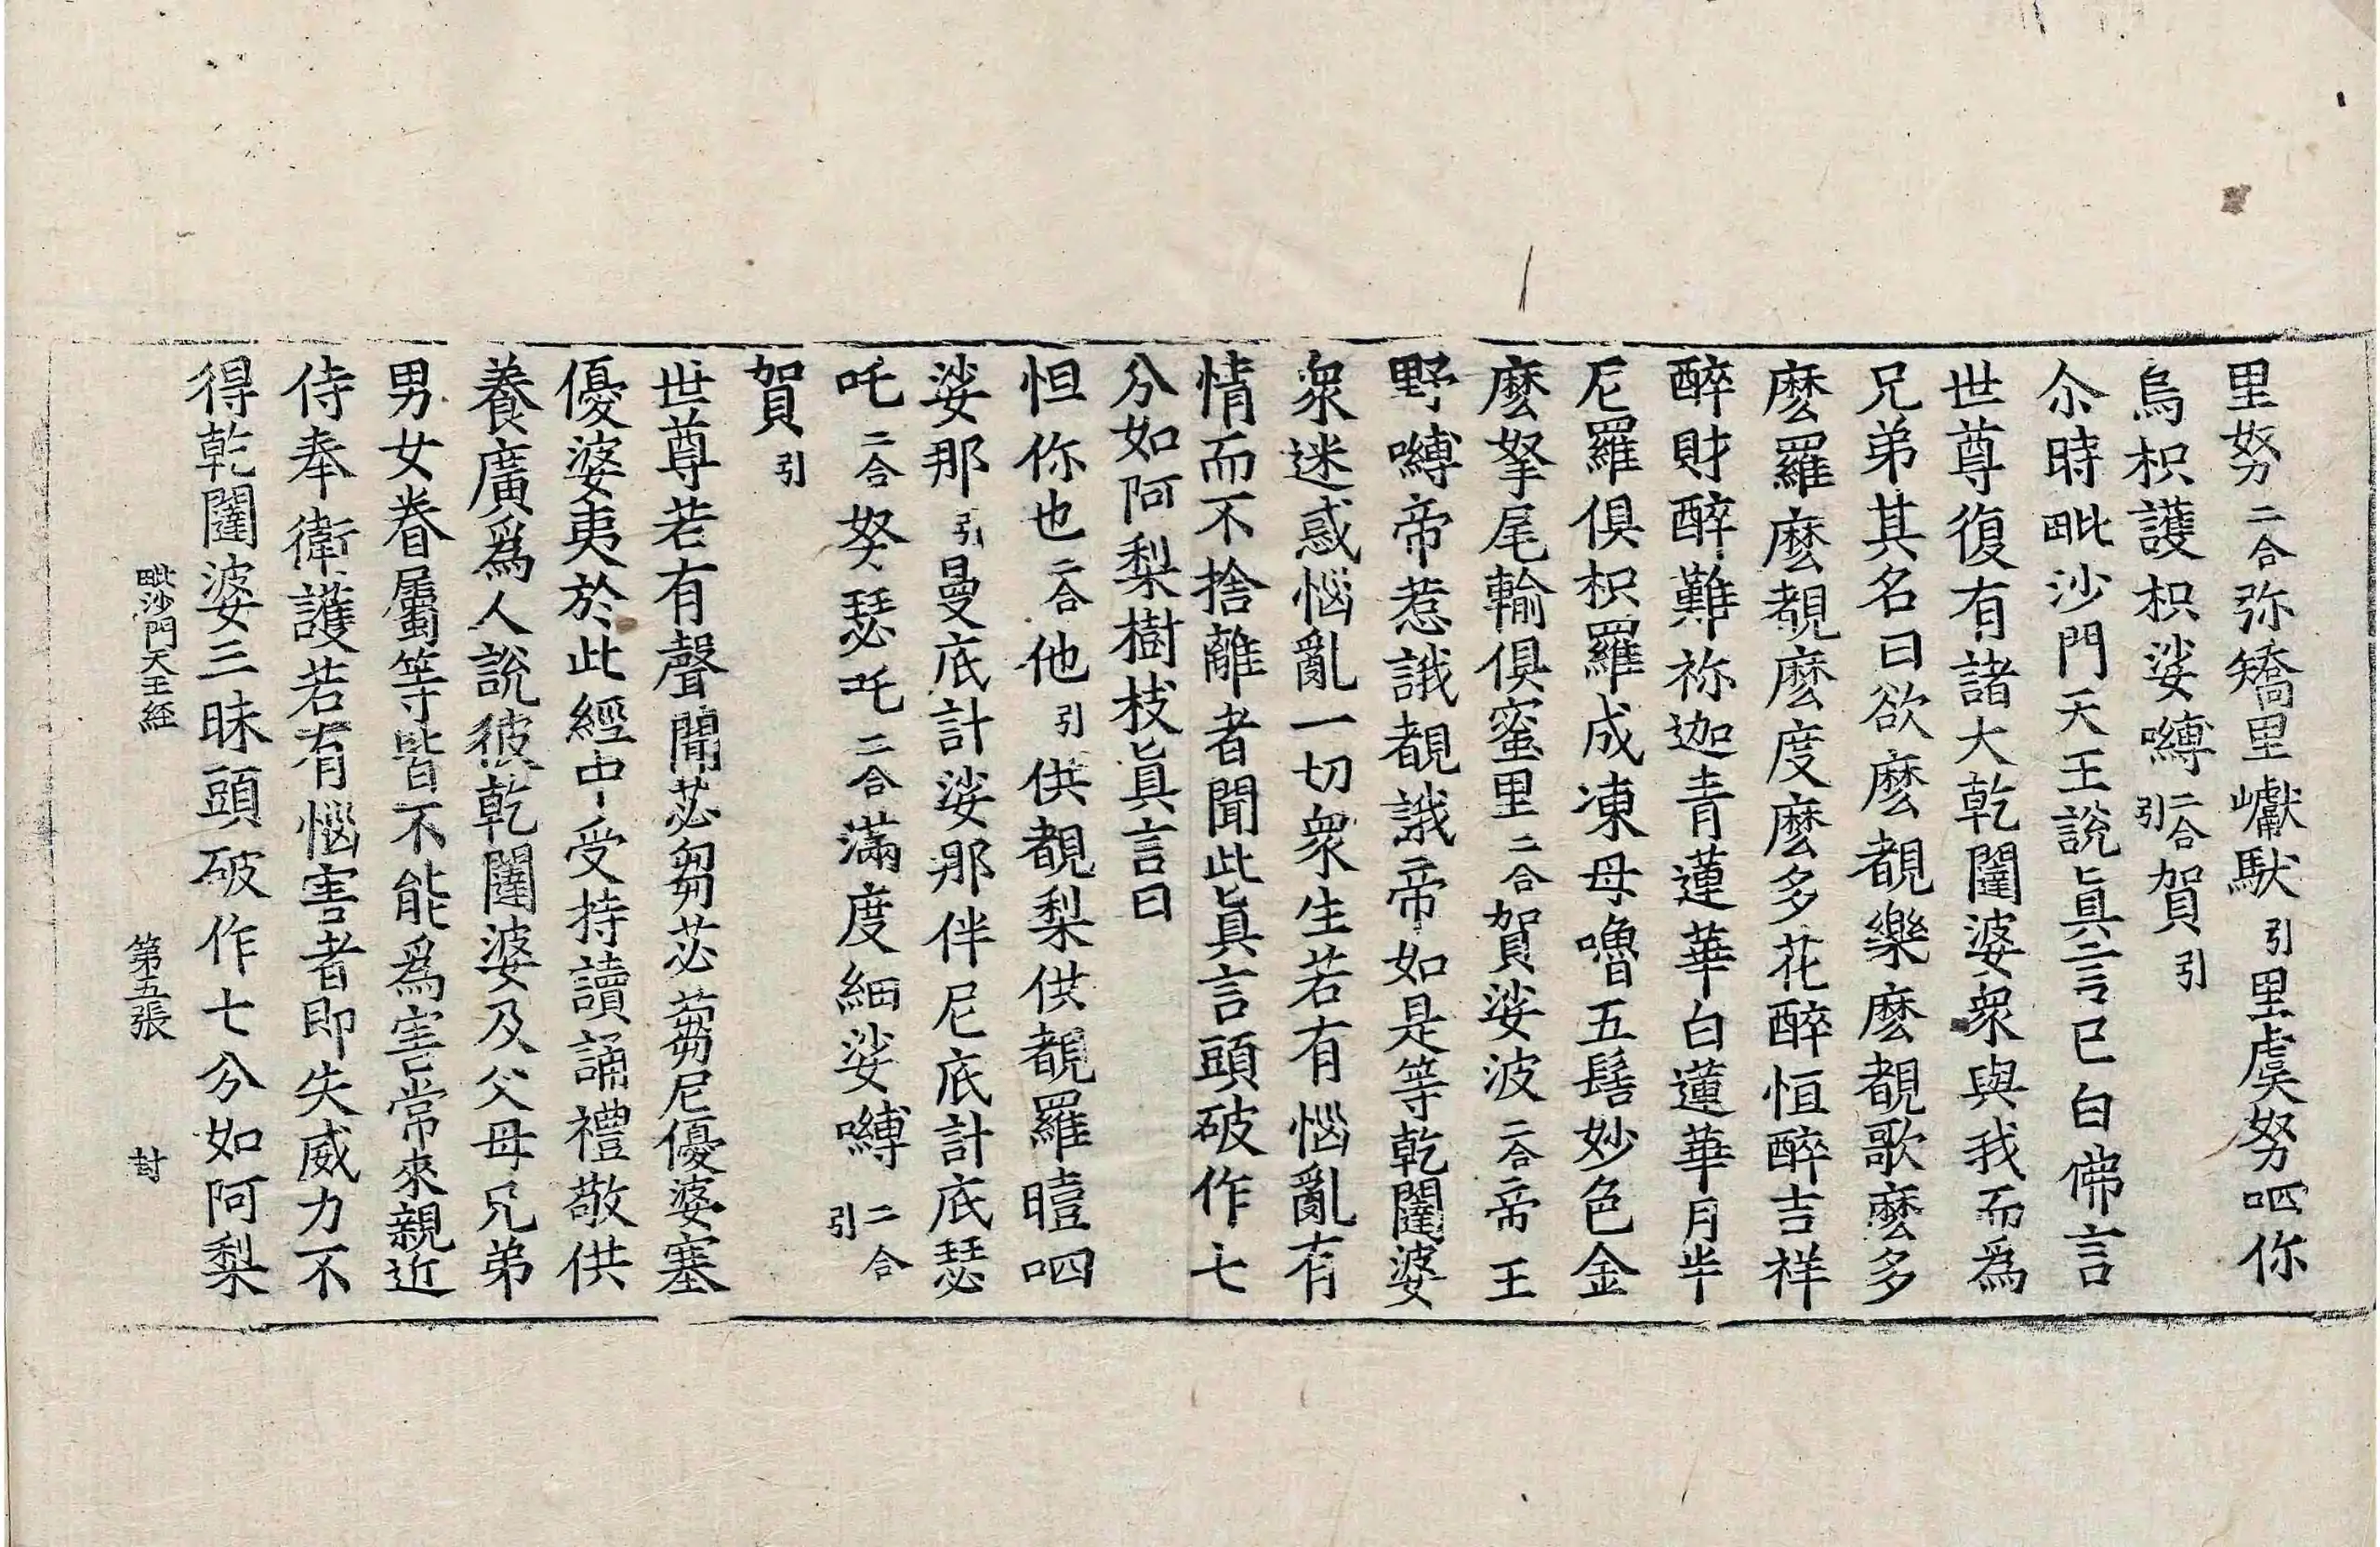 里努二合弥矯里巘馱引里虞努呬你
烏枳護枳娑嚩二合引賀引
尒時毗沙門天王說真言已白佛言
世尊復有諸大乾闥婆衆與我而為
兄弟其名曰欲麽覩樂麽覩歌麽多
麽羅麽覩麽度麽多花醉恒醉吉祥
醉財醉難祢迦青蓮華白蓮華月半
尼羅俱枳羅成凍母嚕五髻妙色金
麽拏尾輸俱蜜里二合賀娑波二合帝王
野嚩帝惹誐覩誐帝如是等乾闥婆
衆迷惑惱亂一切衆生若有惱亂有
情而不捨離者聞此真言頭破作七
分如阿梨樹枝真言曰
怛你也二合他引供覩梨供覩羅曀呬
娑那引曼底計娑那伴尼底計底瑟
吒二合努瑟吒二合滿度緬娑嚩二合引
賀引
世尊若有聲聞苾芻苾蒭尼優婆塞
優婆夷於此經中受持讀誦禮敬供
養廣爲人說彼乾闥婆及父母兄弟
男女眷屬等皆不能為害常來親近
侍奉衛護若有惱害者即失威力不
得乾闥婆三昧頭破作七分如阿梨
毗沙門天王經 第五張 封